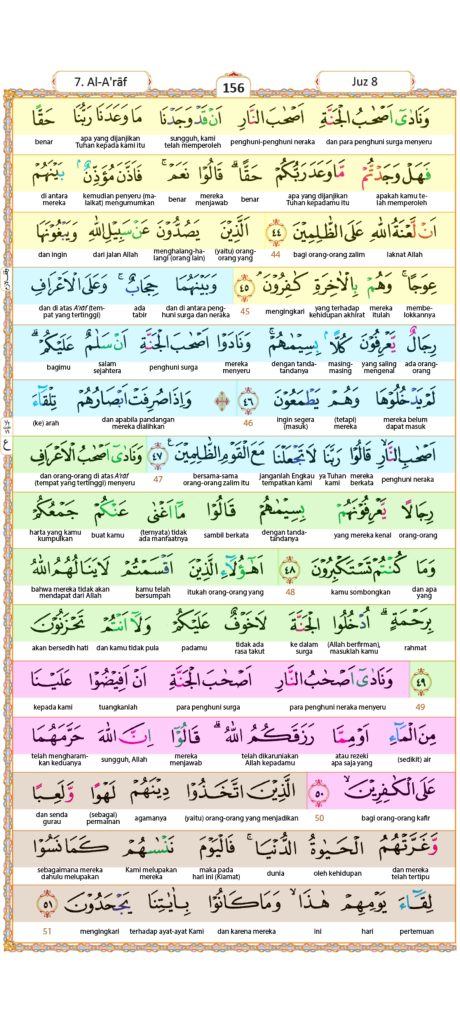 7. Al-A'rāf
156
Juz 8
وَنَادٰٓى اَصْحٰبُ الْجَنَّةِ اَصْحٰبَ النَّارِ اَنْ قَدْ وَجَدْنَا مَا وَعَدَنَا رَبُّنَا حَقًّا
dan para penghuni surga menyeru penghuni-penghuni neraka sungguh, kami telah memperoleh apa yang dijanjikan Tuhan kepada kami itu benar
فَهَلْ وَجَدْتُّمْ مَّا وَعَدَ رَبُّكُمْ حَقًّا ۗ قَالُوْا نَعَمْ ۚ فَاَذَّنَ مُؤَذِّنٌۢ بَيْنَهُمْ
apakah kamu telah memperoleh apa yang dijanjikan Tuhan kepadamu itu benar mereka menjawab benar kemudian penyeru (malaikat) mengumumkan di antara mereka
اَنْ لَّعْنَةُ اللّٰهِ عَلَى الظّٰلِمِيْنَ ۙ ٤٤ الَّذِيْنَ يَصُدُّوْنَ عَنْ سَبِيْلِ اللّٰهِ وَيَبْغُوْنَهَا
laknat Allah bagi orang-orang zalim 44 (yaitu) orang-orang yang menghalang-halangi (orang lain) dari jalan Allah dan ingin
عِوَجًا ۚ وَهُمْ بِالْاٰخِرَةِ كٰفِرُوْنَ ۘ ٤٥ وَبَيْنَهُمَا حِجَابٌ ۚ وَعَلَى الْاَعْرَافِ
membelokkannya mereka itulah yang terhadap kehidupan akhirat mengingkari 45 dan di antara penghuni surga dan neraka ada tabir dan di atas A'rāf (tempat yang tertinggi)
رِجَالٌ يَّعْرِفُوْنَ كُلًّا ۢ بِسِيْمٰىهُمْ ۚ وَنَادَوْا اَصْحٰبَ الْجَنَّةِ اَنْ سَلٰمٌ عَلَيْكُمْ ۗ
ada orang-orang yang saling mengenal masing-masing dengan tanda-tandanya mereka menyeru penghuni surga salam sejahtera bagimu
لَمْ يَدْخُلُوْهَا وَهُمْ يَطْمَعُوْنَ ٤٦ ۞ وَاِذَا صُرِفَتْ اَبْصَارُهُمْ تِلْقَاۤءَ
mereka belum dapat masuk (tetapi) mereka ingin segera (masuk) 46 dan apabila pandangan mereka dialihkan (ke) arah
اَصْحٰبِ النَّارِ ۙ قَالُوْا رَبَّنَا لَا تَجْعَلْنَا مَعَ الْقَوْمِ الظّٰلِمِيْنَ ࣖ ٤٧ وَنَادٰٓى اَصْحٰبُ الْاَعْرَافِ
penghuni neraka mereka berkata ya Tuhan kami janganlah Engkau tempatkan kami bersama-sama orang-orang zalim itu 47 dan orang-orang di atas A'rāf (tempat yang tertinggi) menyeru
رِجَالًا يَّعْرِفُوْنَهُمْ بِسِيْمٰىهُمْ قَالُوْا مَآ اَغْنٰى عَنْكُمْ جَمْعُكُمْ
orang-orang yang mereka kenal dengan tanda-tandanya sambil berkata (ternyata) tidak ada manfaatnya buat kamu harta yang kamu kumpulkan
وَمَا كُنْتُمْ تَسْتَكْبِرُوْنَ ٤٨ اَهٰٓؤُلَاۤءِ الَّذِيْنَ اَقْسَمْتُمْ لَا يَنَالُهُمُ اللّٰهُ
dan apa yang kamu sombongkan 48 itukah orang-orang yang kamu telah bersumpah bahwa mereka tidak akan mendapat dari Allah
بِرَحْمَةٍ ۗ اُدْخُلُوا الْجَنَّةَ لَا خَوْفٌ عَلَيْكُمْ وَلَآ اَنْتُمْ تَحْزَنُوْنَ
rahmat (Allah berfirman), masuklah kamu ke dalam surga tidak ada rasa takut padamu dan kamu tidak pula akan bersedih hati
٤٩ وَنَادٰٓى اَصْحٰبُ النَّارِ اَصْحٰبَ الْجَنَّةِ اَنْ اَفِيْضُوْا عَلَيْنَا
49 para penghuni neraka menyeru para penghuni surga tuangkanlah kepada kami
مِنَ الْمَاۤءِ اَوْ مِمَّا رَزَقَكُمُ اللّٰهُ ۗ قَالُوْٓا اِنَّ اللّٰهَ حَرَّمَهُمَا
(sedikit) air atau rezeki apa saja yang telah dikaruniakan Allah kepadamu mereka menjawab sungguh, Allah telah mengharamkan keduanya
عَلَى الْكٰفِرِيْنَ ۙ ٥٠ الَّذِيْنَ اتَّخَذُوْا دِيْنَهُمْ لَهْوًا وَّلَعِبًا
bagi orang-orang kafir 50 (yaitu) orang-orang yang menjadikan agamanya (sebagai) permainan dan senda gurau
وَّغَرَّتْهُمُ الْحَيٰوةُ الدُّنْيَا ۚ فَالْيَوْمَ نَنْسٰىهُمْ كَمَا نَسُوْا
dan mereka telah tertipu oleh kehidupan dunia maka pada hari ini (Kiamat) Kami melupakan mereka sebagaimana mereka dahulu melupakan
لِقَاۤءَ يَوْمِهِمْ هٰذَا ۙ وَمَا كَانُوْا بِاٰيٰتِنَا يَجْحَدُوْنَ ٥١
pertemuan hari ini dan karena mereka terhadap ayat-ayat Kami mengingkari 51
ع